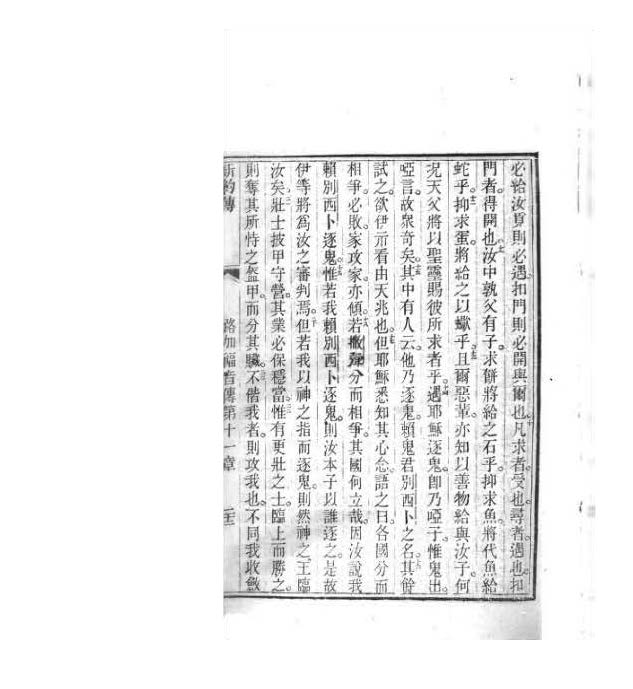 必給汝覓則必遇扣門則必開與爾也凡求者受也尋者遇也扣
門者得開也汝中孰父有子求餅將給之石乎抑求魚將代魚給
蛇乎抑求蛋將給之以蠍乎且爾惡輩亦知以善物給與汝子何
况天父將以聖靈賜彼所求者乎遇耶穌逐鬼卽乃啞子惟鬼出
啞言故衆奇矣其中有人云他乃逐鬼賴鬼君別西卜之名其餘
試之欲伊示看由天兆也但耶穌悉知其心怠語之曰各國分而
相爭必敗家攻家亦傾若撒彈分而相爭其國何立哉因汝說我
賴別西卜逐鬼惟若我賴別西卜逐鬼則汝本子以誰逐之是故
伊等將爲汝之審判焉但若我以神之指而逐鬼則然神之王臨
汝矣壯士披甲守營其業必保穩當惟有更壯之士臨上而勝之
則奪其所恃之盔甲而分其贓不偕我者則攻我也不同我收斂
新約傳 路加福音傳第十一章